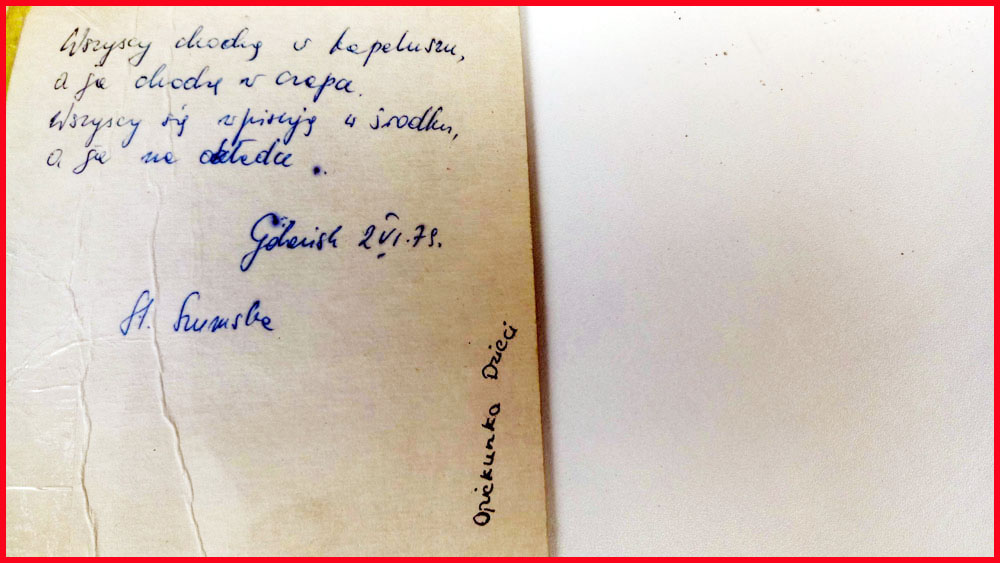 Wszyscy chodzę w kapeluszu,
a ja chodzę w czapce.
Wszyscy się wpisują w środku,
a ja na okładce.
Gdańsk 2 VI. 79.
St. Szumska
Opiekunka Dzieci